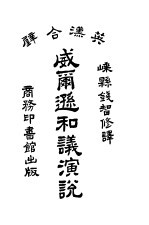 英漢合璧
嵊縣錢智修譯
威爾遜和議演說
商務印書館出版